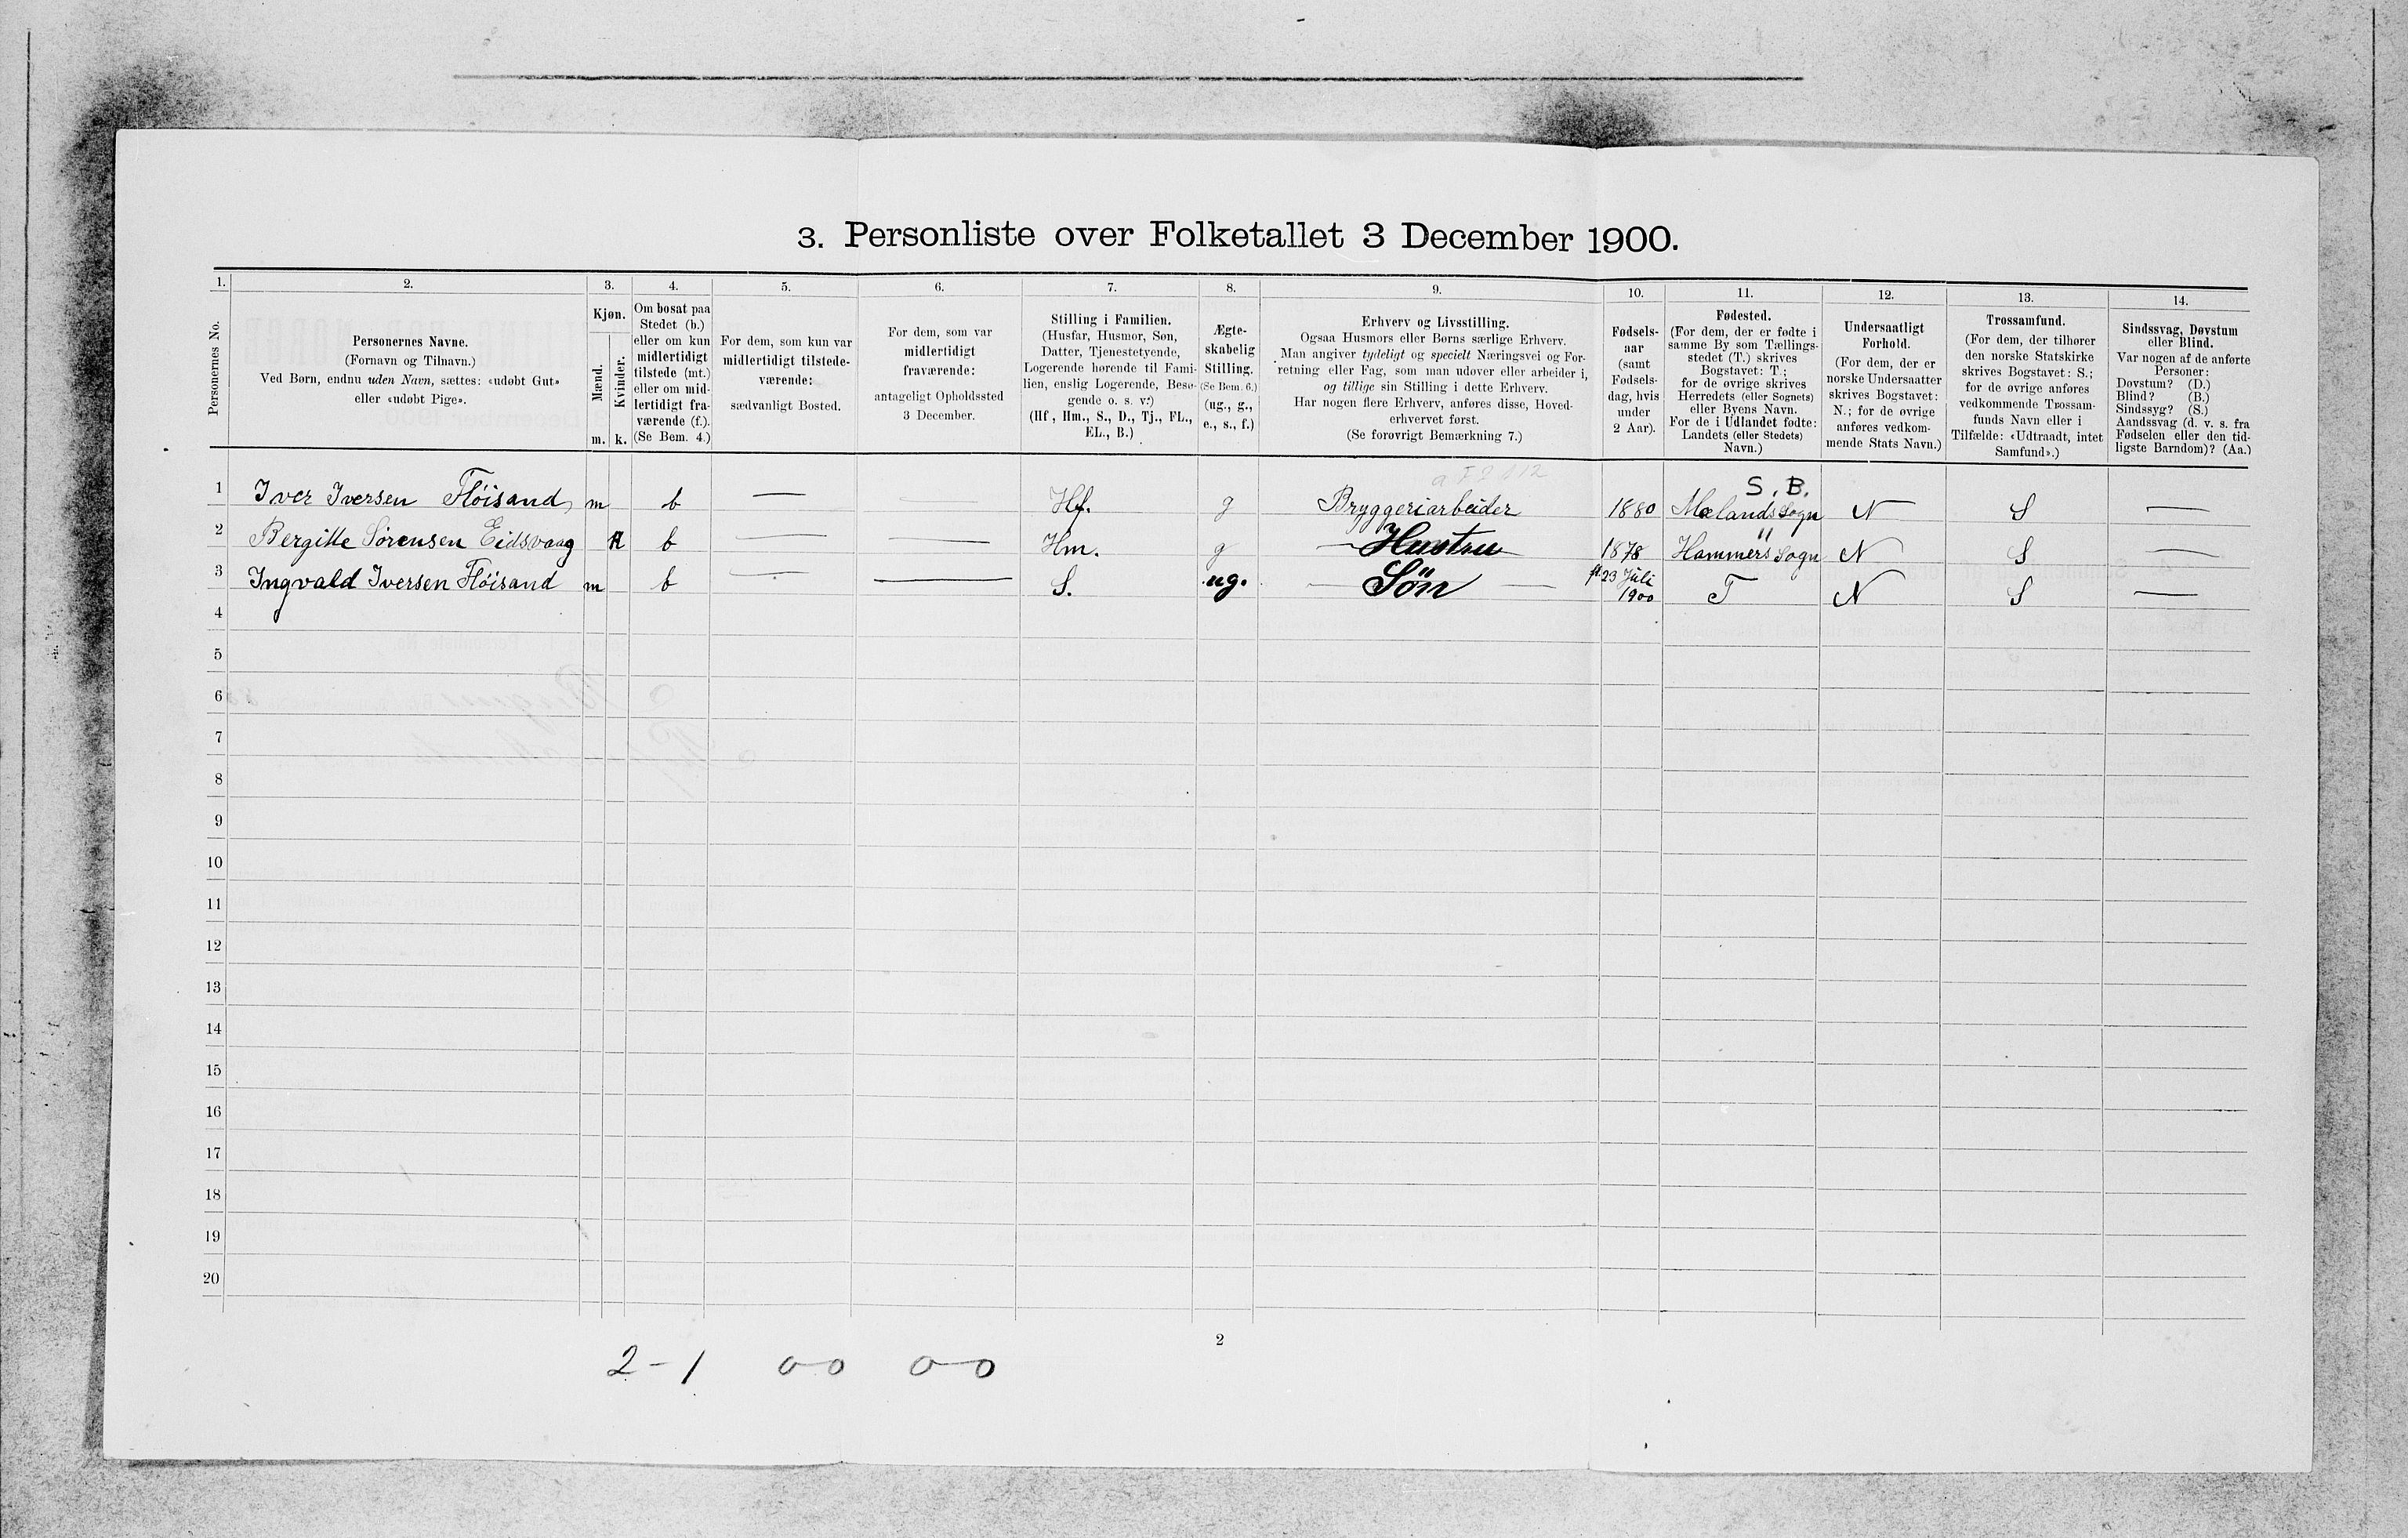 3. Personliste over Folketallet 3 December 1900.
1. 2. 3. 4. 5. 6. 7. 8. 9. 10. 11. 12. 13. 14.
Personernes No.
Personernes Navne.
(Fornavn og Tilnavn.)
Ved Børn, endnu uden Navn, sættes: «udøbt Gut»
eller «udøbt Pige».
Kjøn.
Mænd.
Kvinder.
m. k.
Om bosat paa
Stedet (b.)
eller om kun
midlertidigt
tilstede (mt.)
eller om mid-
lertidigt fra-
værende (f.).
(Se Bem. 4.)
For dem, som kun var
midlertidigt tilstede-
værende:
sædvanligt Bosted.
For dem, som var
midlertidigt
fraværende:
antageligt Opholdssted
3 December.
Stilling i Familien.
(Husfar, Husmor, Søn,
Datter, Tjenestetyende,
Logerende hørende til Fami-
lien, enslig Logerende, Besø-
gende o. s. v.)
(Hf, Hm., S., D., Tj., FL.,
EL., B.)
Ægte-
skabelig
Stilling.
(Se Bem. 6.)
(ug., g.,
e., s., f.)
Erhverv og Livsstilling.
Ogsaa Husmors eller Børns særlige Erhverv.
Man angiver tydeligt og specielt Næringsvei og For-
retning eller Fag, som man udøver eller arbeider i,
og tillige sin Stilling i dette Erhverv.
Har nogen flere Erhverv, anføres disse, Hoved-
erhvervet først.
(Se forøvrigt Bemærkning 7.)
Fødsels-
aar
(samt
Fødsels-
dag, hvis
under
2 Aar).
Fødested.
(For dem, der er fødte i
samme By som Tællings-
stedet (T.) skrives
Bogstavet: T.;
for de øvrige skrives
Herredets (eller Sognets)
eller Byens Navn.
For de i Udlandet fødte:
Landets (eller Stedets)
Navn.)
Undersaatligt
Forhold.
(For dem, der er
norske Undersaatter
skrives Bogstavet:
N.; for de øvrige
anføres vedkom-
mende Stats Navn.)
Trossamfund.
(For dem, der tilhører
den norske Statskirke
skrives Bogstavet: S.;
for de øvrige anføres
vedkommende Trossam-
funds Navn eller i
Tilfælde: «Udtraadt, intet
Samfund».)
Sindssvag, Døvstum
eller Blind.
Var nogen af de anførte
Personer:
Døvstum? (D.)
Blind? (B.)
Sindssyg? (S.)
Aandssvag (d. v. s. fra
Fødselen eller den tid-
ligste Barndom)? (Aa.)
S. B.
1 Iver Iversen Fløisand, m b — — Hf. g Bryggeriarbeider 1880 Mælands Sogn N S —
"
2 Bergitte Sørensen Eidsvaag k b — — Hm. g — Hustru — 1878 Hammers Sogn N S —
3 Ingvald Iversen Fløisand m b — — S. ug. — Søn — 23 Juli 1900 T N S —
4
5
6
7
8
9
10
11
12
13
14
15
16
17
18
19
20
2
2 - 1 0-0 0-0